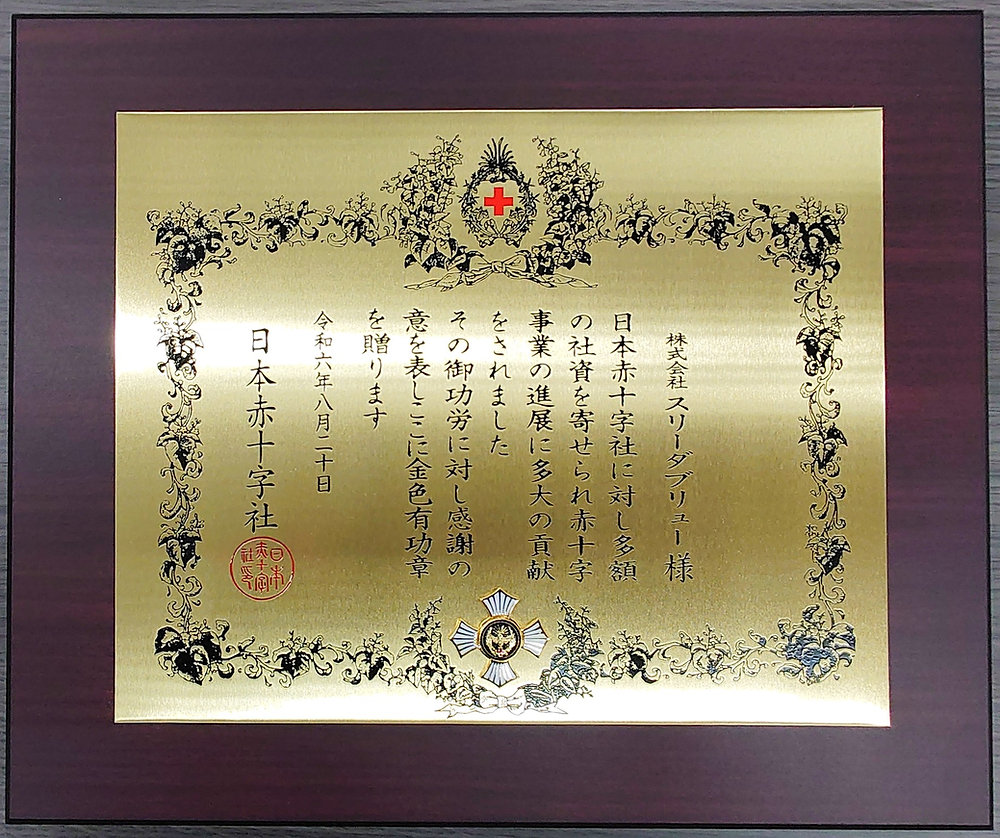 株式会社 スリーダブリュー 様
日本赤十字社に対し多額
の社資を寄せられ赤十字
事業の進展に多大の貢献
をされました
その御功労に対し感謝の
意を表しここに金色有功章
を贈ります
令和六年八月二十日
日本赤十字社
日本
赤十字
社印